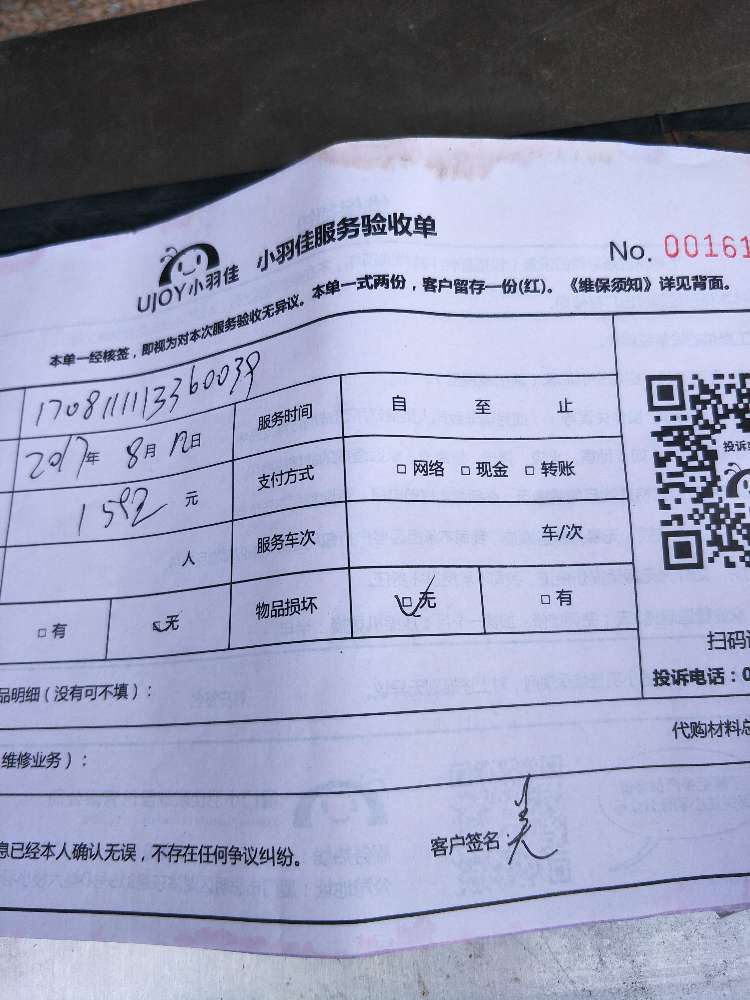 UJOY小羽佳 小羽佳服务验收单
No. 00161
本单一经核签，即视为对本次服务验收无异议。本单一式两份，客户留存一份(红)。《维保须知》详见背面。
170811113360039 服务时间 自 至 止
2017年 8月12日 支付方式 □网络 □现金 □转账
1592 元
人 服务车次 车/次
□有 □无 物品损坏 □无 □有
投诉
扫码
投诉电话：0
品明细（没有可不填）：
代购材料总
维修业务）：
息已经本人确认无误，不存在任何争议纠纷。
客户签名：